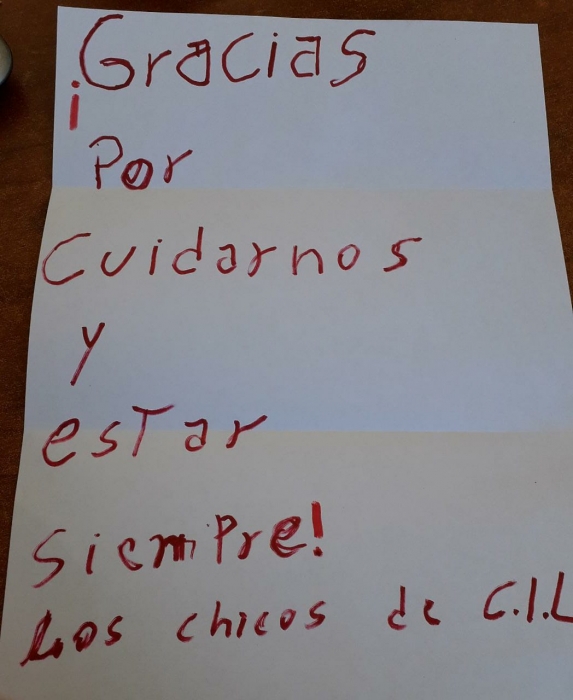 ¡Gracias
Por
Cuidarnos
y
esTar
SiemPre!
Los chicos de C.I.L